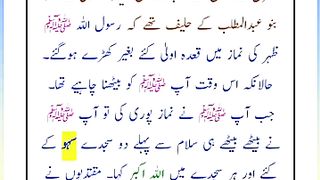 بنو عبدالمطلب کے حلیف تھے کہ رسول اللہ ﷺ
ظہر کی نماز میں قعدہ اولیٰ کئے بغیر کھڑے ہوگئے۔
حالانکہ اس وقت آپ ﷺ کو بیٹھنا چاہیے تھا۔
جب آپ ﷺ نے نماز پوری کی تو آپ ﷺ
نے بیٹھے بیٹھے ہی سلام سے پہلے دو سجدے سہو کے
کئے اور ہر سجدے میں اللہ اکبر کہا۔ مقتدیوں نے